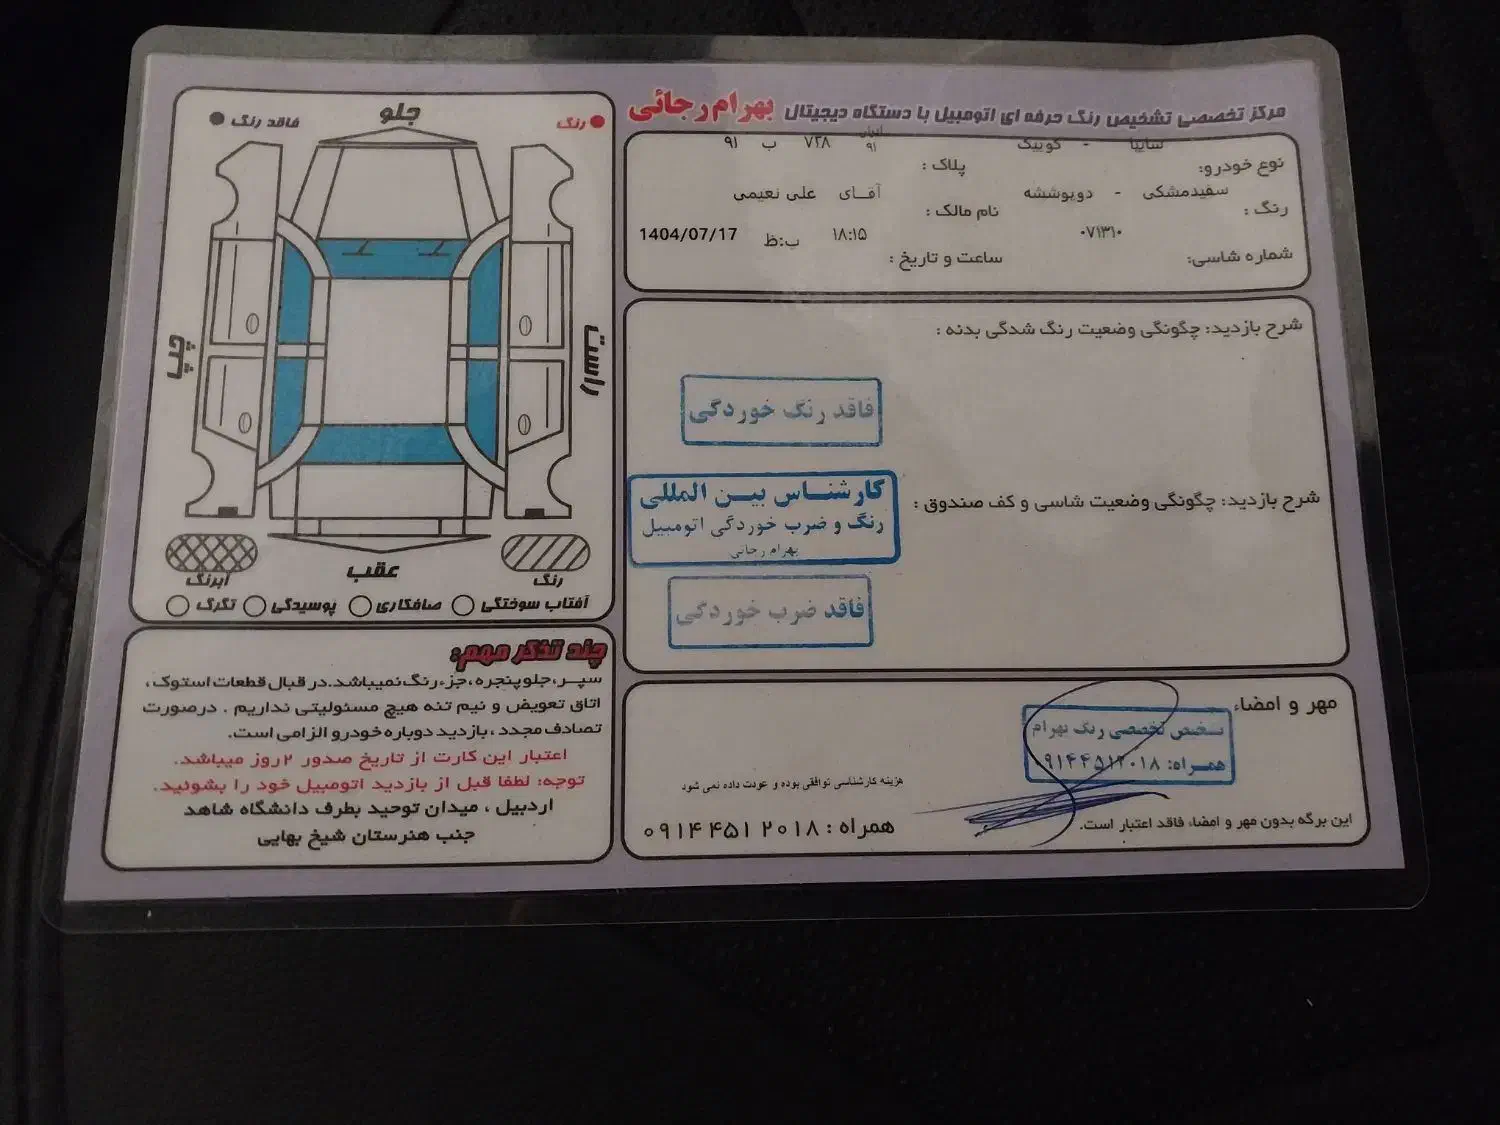 مرکز تخصصی تشخیص رنگ حرفه ای اتومبیل با دستگاه دیجیتال بهرام رجائی
نوع خودرو: سایپا - کوییک
پلاک : ایران ۹۱ ۷۲۸ ب ۹۱
رنگ : سفیدمشکی - دوپوششه
نام مالک : آقـــای علی نعیمی
شماره شاسی: ۰۷۱۳۱۰
ساعت و تاریخ : ۱۸:۱۵ ب:ظ 1404/07/17
شرح بازدید: چگونگی وضعیت رنگ شدگی بدنه :
فاقد رنگ خوردگی
شرح بازدید: چگونگی وضعیت شاسی و کف صندوق :
کارشناس بین المللی
رنگ و ضرب خوردگی اتومبیل
بهرام رجائی
فاقد ضرب خوردگی
مهر و امضاء
تشخیص تخصصی رنگ بهرام
همراه: ۰۹۱۴۴۵۱۲۰۱۸
هزینه کارشناسی توافقی بوده و عودت داده نمی شود
این برگه بدون مهر و امضاء فاقد اعتبار است.
همراه : ۰۹۱۴ ۴۵۱ ۲۰۱۸
رنگ
جلو
فاقد رنگ
راست
چپ
رنگ
عقب
آبرنگ
آفتاب سوختگی
صافکاری
پوسیدگی
تگرگ
چند تذکر مهم:
سپـر،جلوپنجره،جزءرنگ‌نمیباشد.در قبال قطعات استوک،
اتاق تعویض و نیم تنه هیچ مسئولیتی نداریم . درصورت
تصادف مجدد ، بازدید دوباره خودرو الزامی است.
اعتبار این کارت از تاریخ صدور ۲ روز میباشد.
توجه: لطفا قبل از بازدید اتومبیل خود را بشوئید.
اردبیل ، میدان توحید بطرف دانشگاه شاهد
جنب هنرستان شیخ بهایی